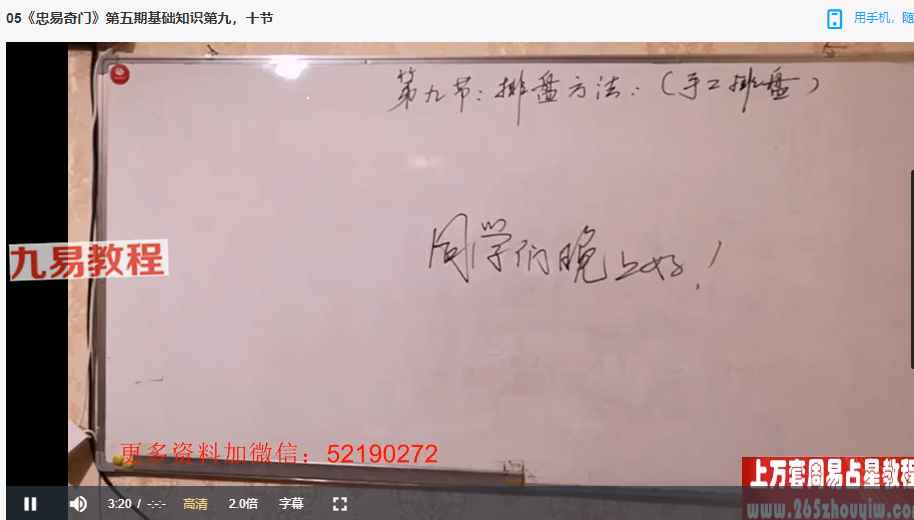 05《忠易奇门》第五期基础知识第九，十节
用手机，随
第九节：排盘方法：（手工排盘）
同学们晚上好！
九易教程
更多资料加微信：52190272
上万套周易占星教程
www.265zhouyiw.com
3:20 / -:-:- 高清 2.0倍 字幕